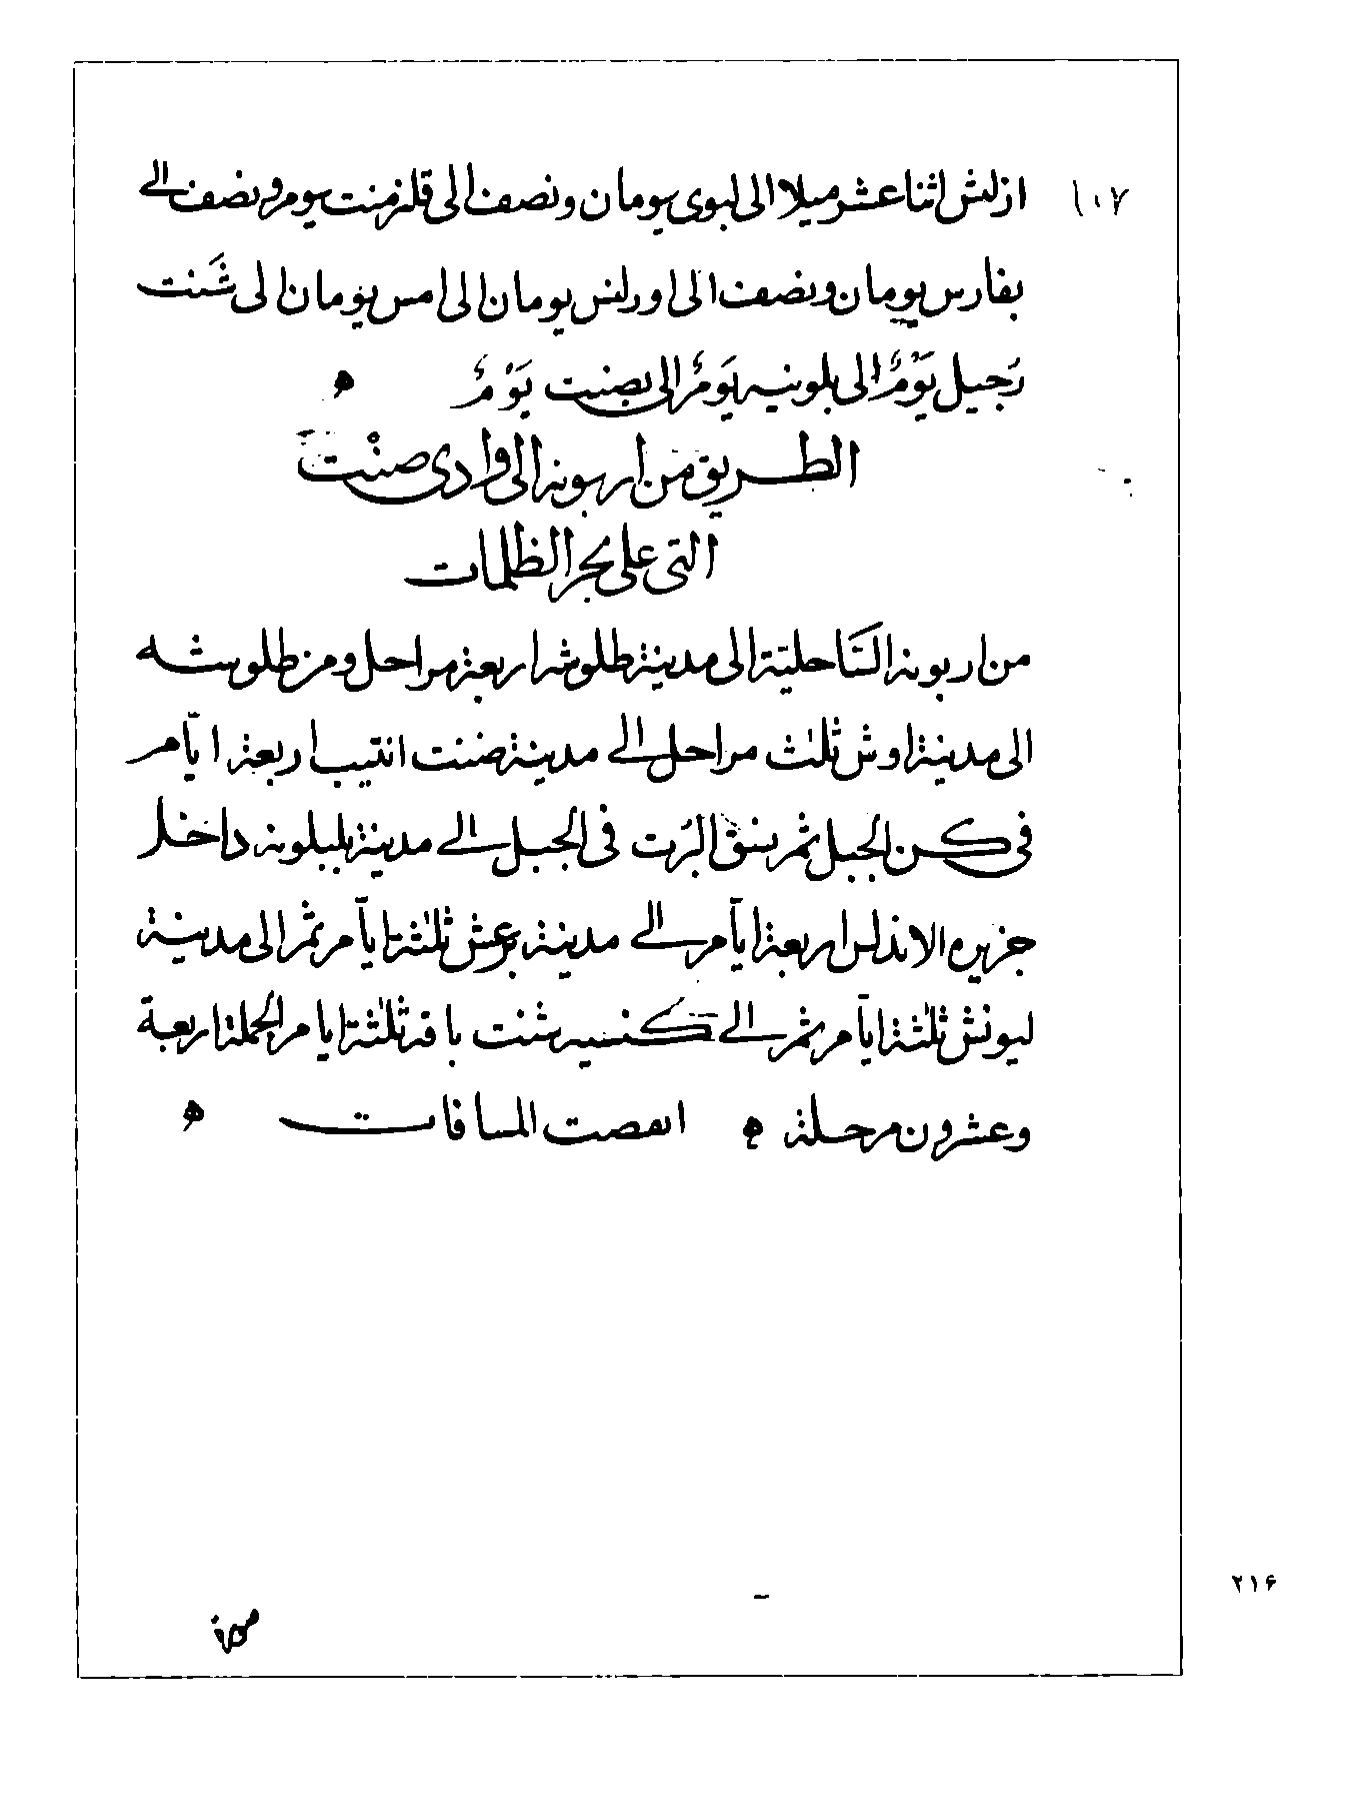 ١٠٧
ازلش اثنا عشر ميلا الى لبوى يومان ونصف الى قلرمنت يوم ونصف الى
بفارس يومان ونصف الى اورلنس يومان الى امس يومان الى شَنت
رجيل يَوْمٌ الى بلونيه يَومٌ الى بصنت يَوْمٌ ه
الطريق من اربونه الى وادى صنْت
التى على بحر الظلمات
من اربونة السَّاحليّة الى مدينة طلوشه اربعة مراحل ومن طلوشه
الى مدينة اوش ثلٰث مراحل الى مدينة ضنت انتيب اربعة ايّام
فى كن الجبل ثم يشق البُرت فى الجبل الى مدينة بلبلونه داخل
جزيره الاندلس اربعة ايّام الى مدينة برعش ثلٰثة ايّام ثم الى مدينة
ليونش ثلٰثة ايّام ثم الى كنسيه شنت ياقه ثلٰثة ايام الجملة اربعة
وعشرون مرحلة ه انقصت المسافات ه
صورة
٢١۶